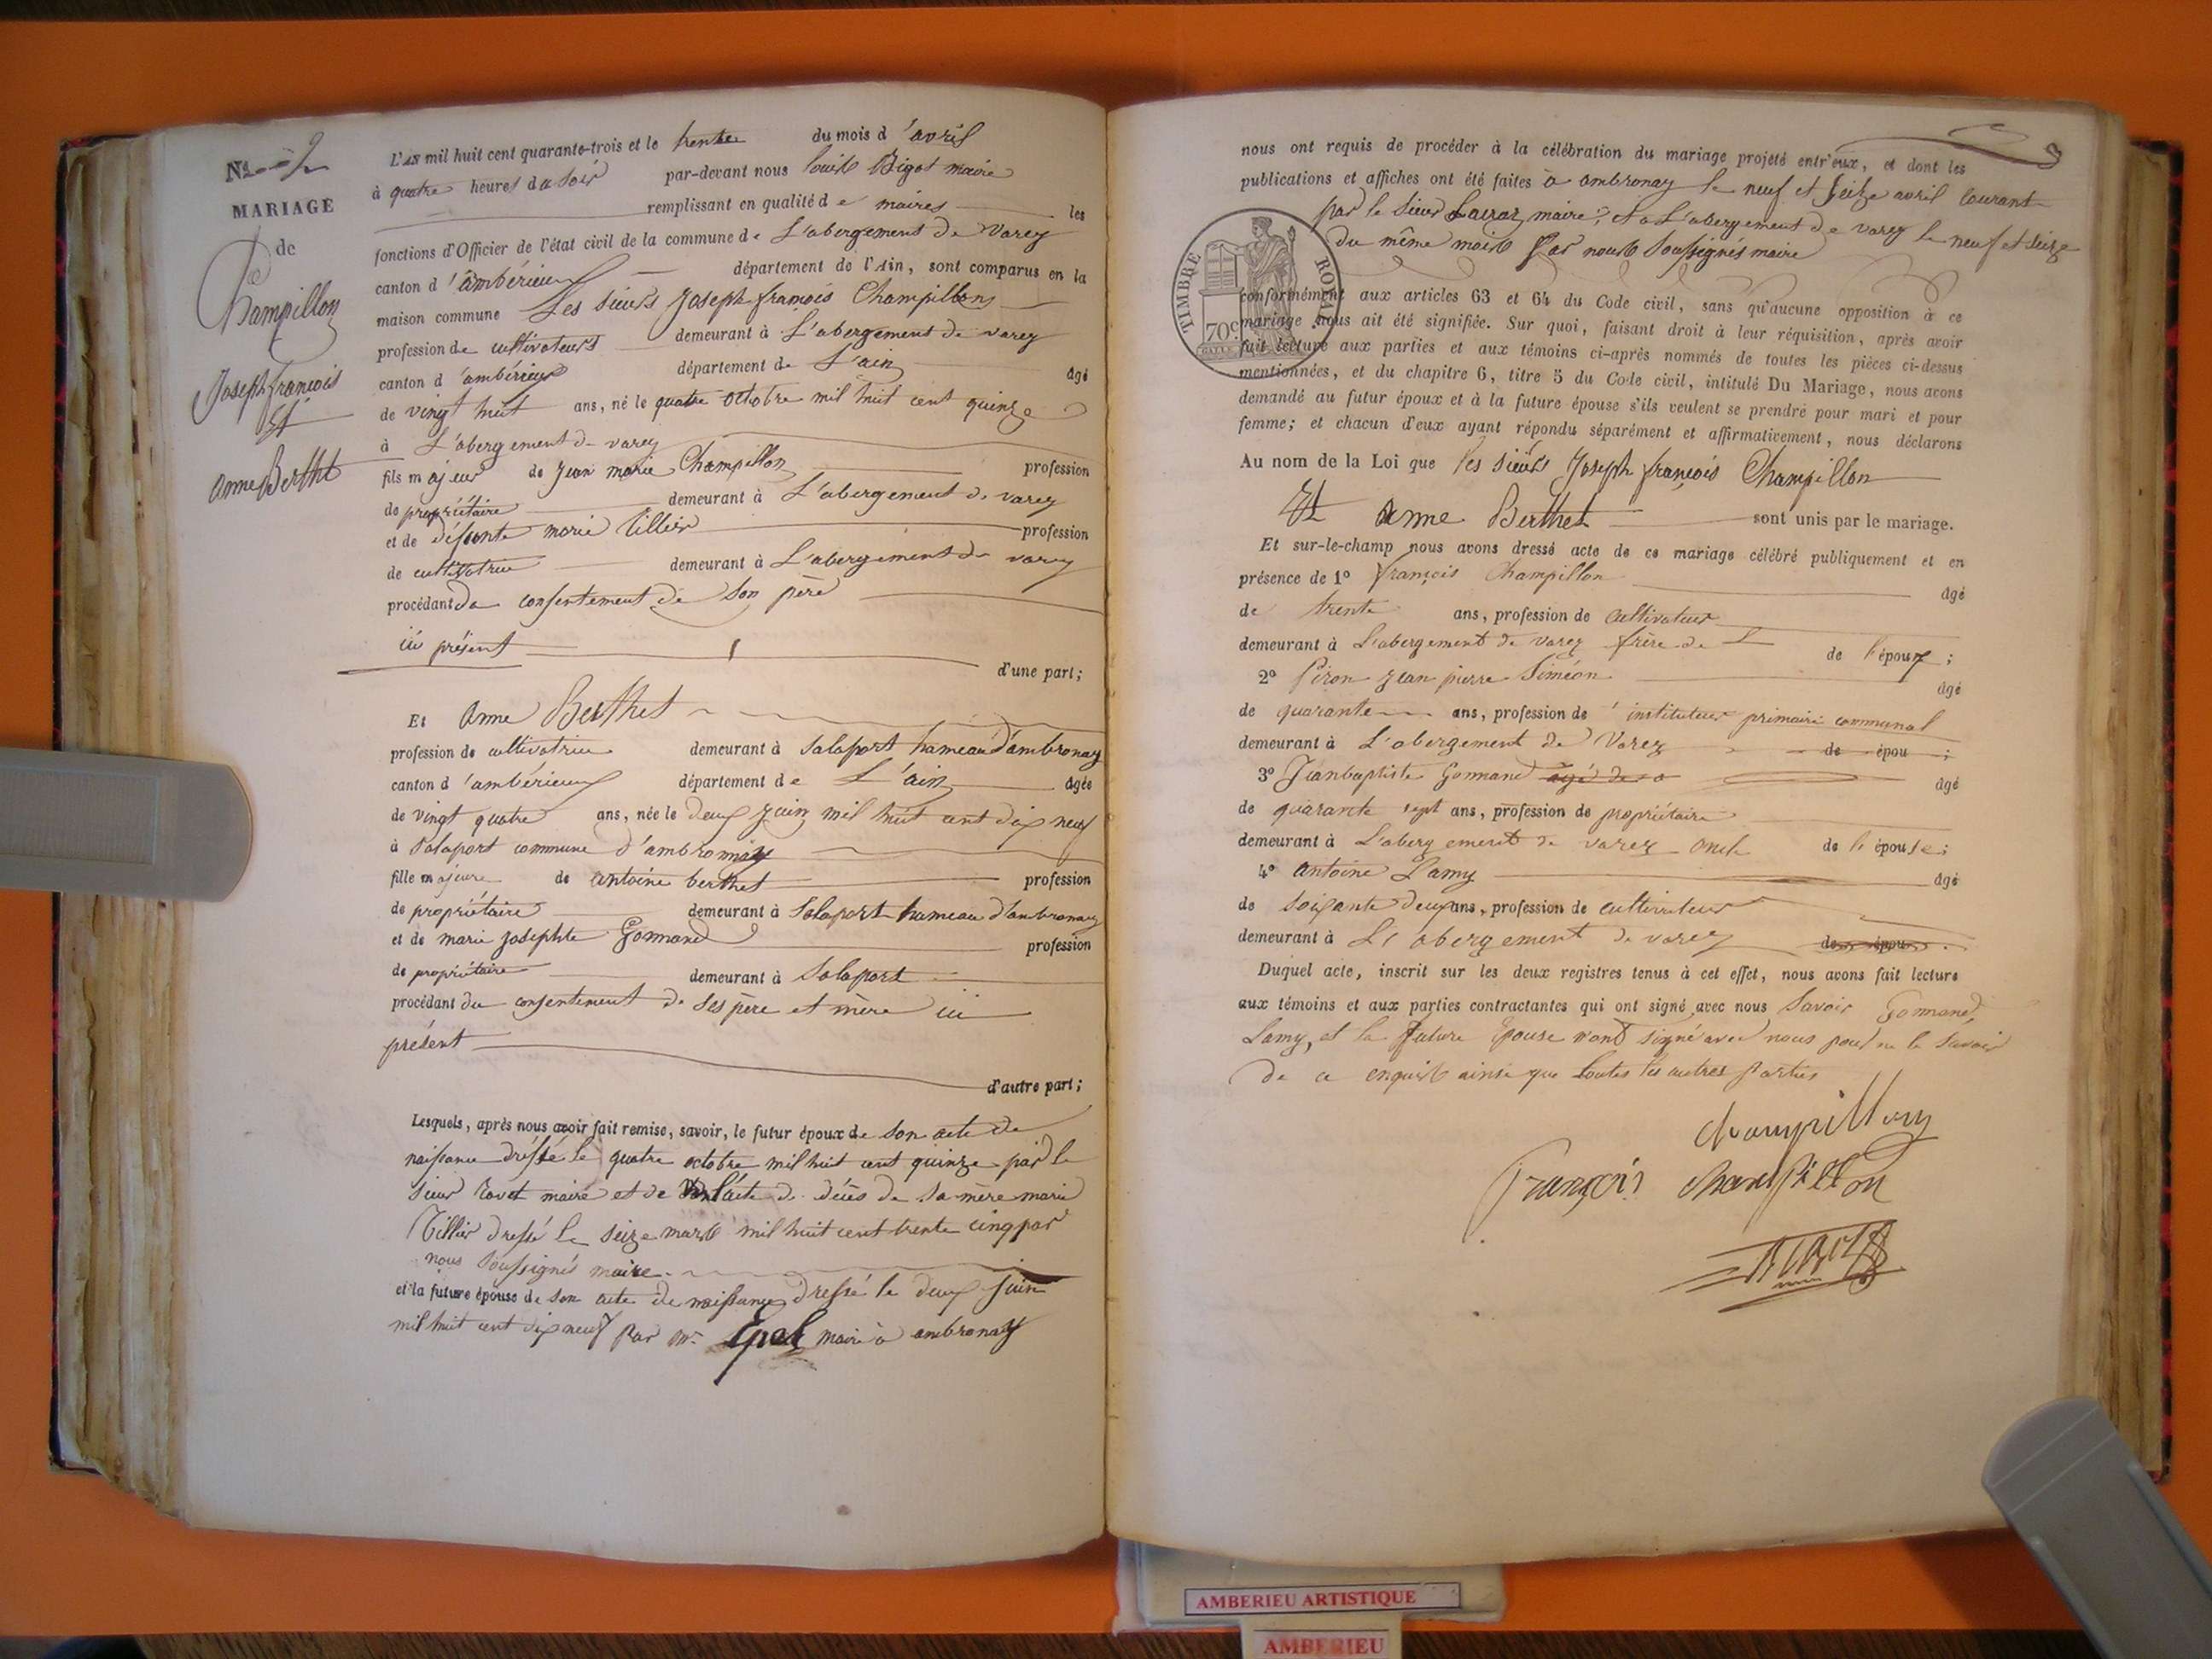 N.º 2
MARIAGE
de
Champillon
Joseph françois
Et
anne Berthet
L'AN mil huit cent quarante-trois et le trente du mois d'avril
à quatre heures du soir par-devant nous louis Bigot maire
remplissant en qualité de maires les
fonctions d'Officier de l'état civil de la commune de L'abergement de Varey
canton d'ambérieux département de l'Ain, sont comparus en la
maison commune Les sieurs Joseph françois Champillon
profession de cultivateurs demeurant à L'abergement de varey
canton d'ambérieux département de L'ain âgé
de vingt huit ans, né le quatre octobre mil huit cent quinze
à L'abergement de varey
fils majeur de Jean marie Champillon profession
de propriétaire demeurant à L'abergement de varey
et de défunte marie tillier profession
de cultivatrice demeurant à L'abergement de varey
procédant du consentement de son père
ici présent
d'une part;
Et anne Berthet
profession de cultivatrice demeurant à Salaport hameau d'ambronay
canton d'ambérieux département de L'ain âgée
de vingt quatre ans, née le deux juin mil huit cent dix neuf
à Salaport commune d'ambronay
fille majeure de antoine berthet profession
de propriétaire demeurant à Salaport hameau d'ambronay
et de marie josephte Gonnand profession
de propriétaire demeurant à Salaport
procédant du consentement de ses père et mère ici
présent
d'autre part;
Lesquels, après nous avoir fait remise, savoir, le futur époux de son acte de
naissance dréssé le quatre octobre mil huit cent quinze par le
sieur maire et de l'acte de décès de sa mère marie
Tillier dressé le seize mars mil huit cent trente cinq par
nous soussignés maire
et la future épouse de son acte de naissance dressé le deux juin
mil huit cent dix neuf par mr. maire à ambronay
nous ont requis de procéder à la célébration du mariage projeté entr'eux, et dont les
publications et affiches ont été faites à ambronay le neuf et seize avril courant
par le sieur maire, et a L'abergement de varey le neuf et seize
du même mois par nous soussignés maire
TIMBRE ROYAL
70c
conformément aux articles 63 et 64 du Code civil, sans qu'aucune opposition à ce
mariage nous ait été signifiée. Sur quoi, faisant droit à leur réquisition, après avoir
fait lecture aux parties et aux témoins ci-après nommés de toutes les pièces ci-dessus
mentionnées, et du chapitre 6, titre 5 du Code civil, intitulé Du Mariage, nous avons
demandé au futur époux et à la future épouse s'ils veulent se prendre pour mari et pour
femme; et chacun d'eux ayant répondu séparément et affirmativement, nous déclarons
Au nom de la Loi que les sieurs Joseph françois Champillon
Et anne Berthet sont unis par le mariage.
Et sur-le-champ nous avons dressé acte de ce mariage célébré publiquement et en
présence de 1º françois Champillon âgé
de trente ans, profession de cultivateur
demeurant à L'abergement de varey frère de L de l'époux;
2º Piron jean pierre Siméon âgé
de quarante ans, profession de l'instituteur primaire communal
demeurant à L'abergement de Varey de épou ;
3º Jeanbaptiste Gonnand agé de âgé
de quarante sept ans, profession de propriétaire
demeurant à L'abergement de varey oncle de l'épouse;
4º antoine Lamy âgé
de soixante deux ans, profession de cultivateur
demeurant à L'abergement de varey de épou .
Duquel acte, inscrit sur les deux registres tenus à cet effet, nous avons fait lecture
aux témoins et aux parties contractantes qui ont signé avec nous Savoir Gonnand,
Lamy, et la future Epouse n'ont signé avec nous pour ne le savoir
de ce enquis ainsi que toutes les autres parties
Champillon
françois champillon
BIGOT
AMBERIEU ARTISTIQUE
AMBERIEU